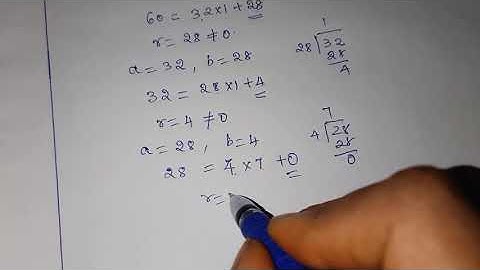 60 = 32×1+28
r= 28 ≠0
a=32, b=28
32 = 28×1+4
r=4 ≠0
a=28, b=4
28 = 4×7 +0
r=
1
28 32
28
4
7
4 28
28
0